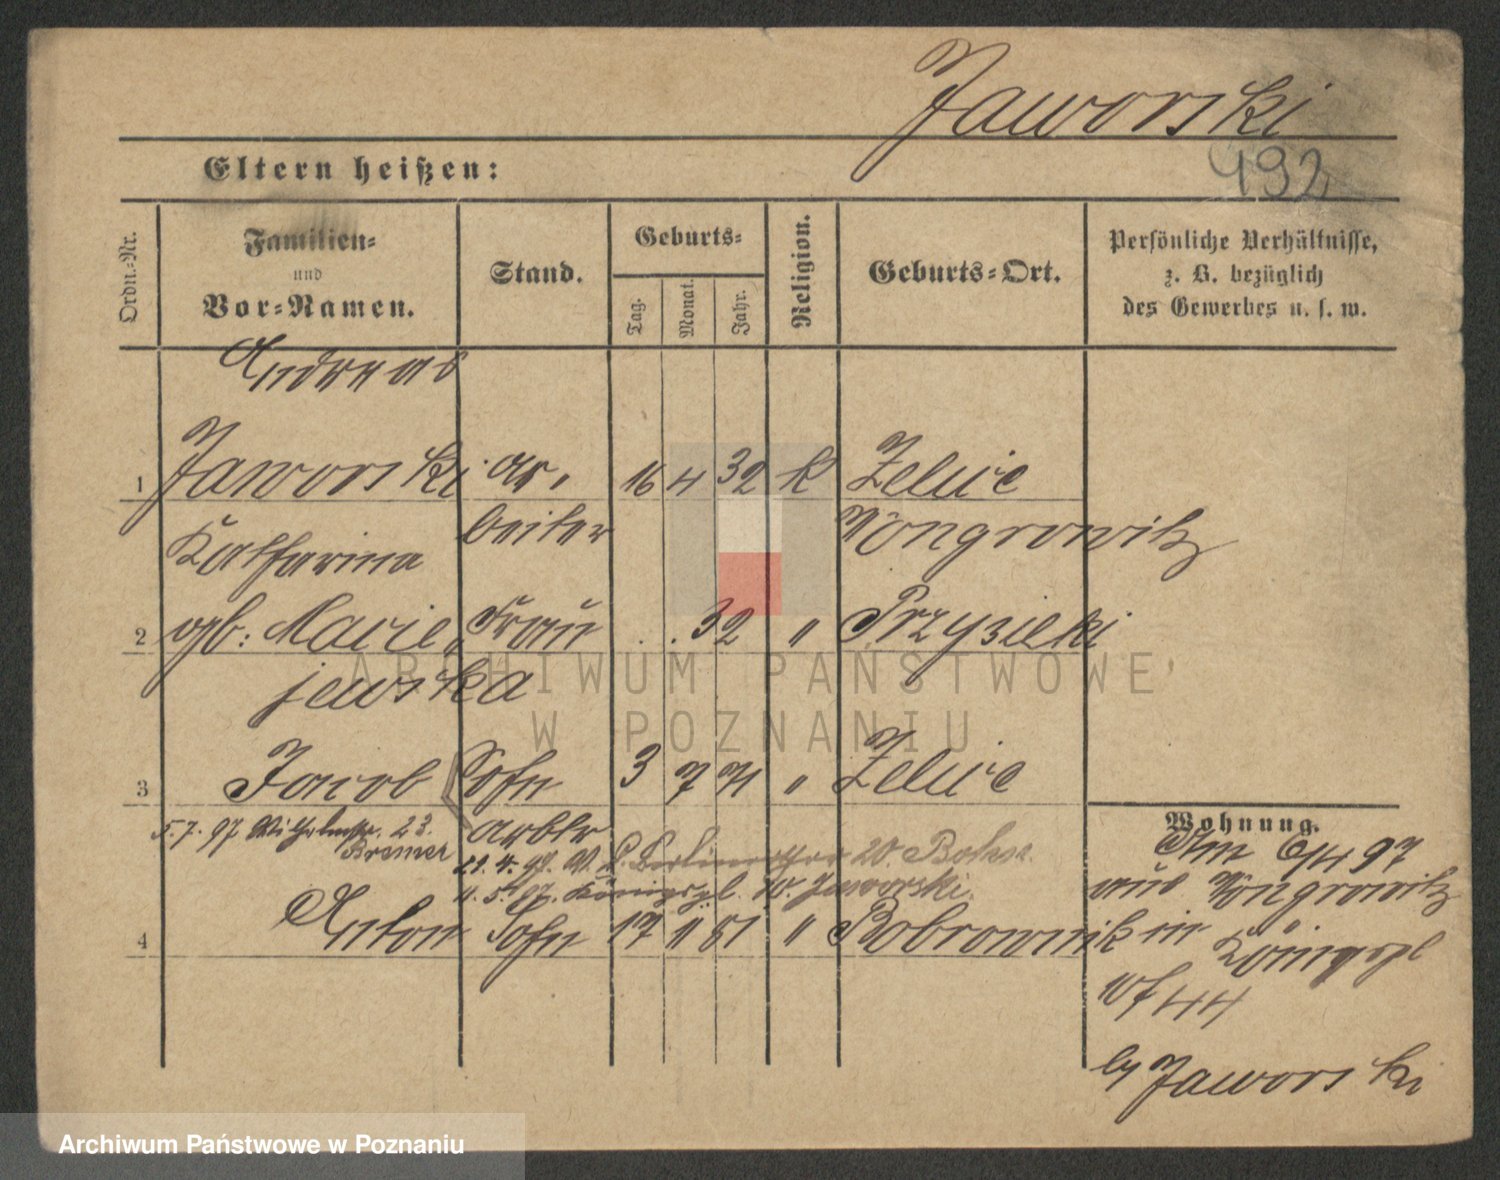 Jaworski
492
Eltern heißen:
Ordn.-Nr.
Familien-
und
Vor-Namen.
Stand.
Geburts-
Tag.
Monat.
Jahr.
Religion.
Geburts-Ort.
Persönliche Verhältnisse,
z. B. bezüglich
des Gewerbes u. s. w.
Andreas
1 Jaworski Ar- 16 4 32 k Zelice
beiter Wongrowitz
Katharina
2 gb: Marie- Frau 32 " Przysieki
jewska
3 Jacob Sohn 3 7 71 " Zelice
Arbtr
5.7.97 Wilhelmstr. 23.
Bremer
29. 4. 97. W. L. Berliner 20.
4. 5. 97. Königspl. W. Jaworski.
4 Anton Sohn 17 11 81 " Bobrownik
Wohnung.
Am 6/4 97
aus Wongrowitz
in Königspl
44
by Jaworski
ARCHIWUM PAŃSTWOWE
W POZNANIU
Archiwum Państwowe w Poznaniu